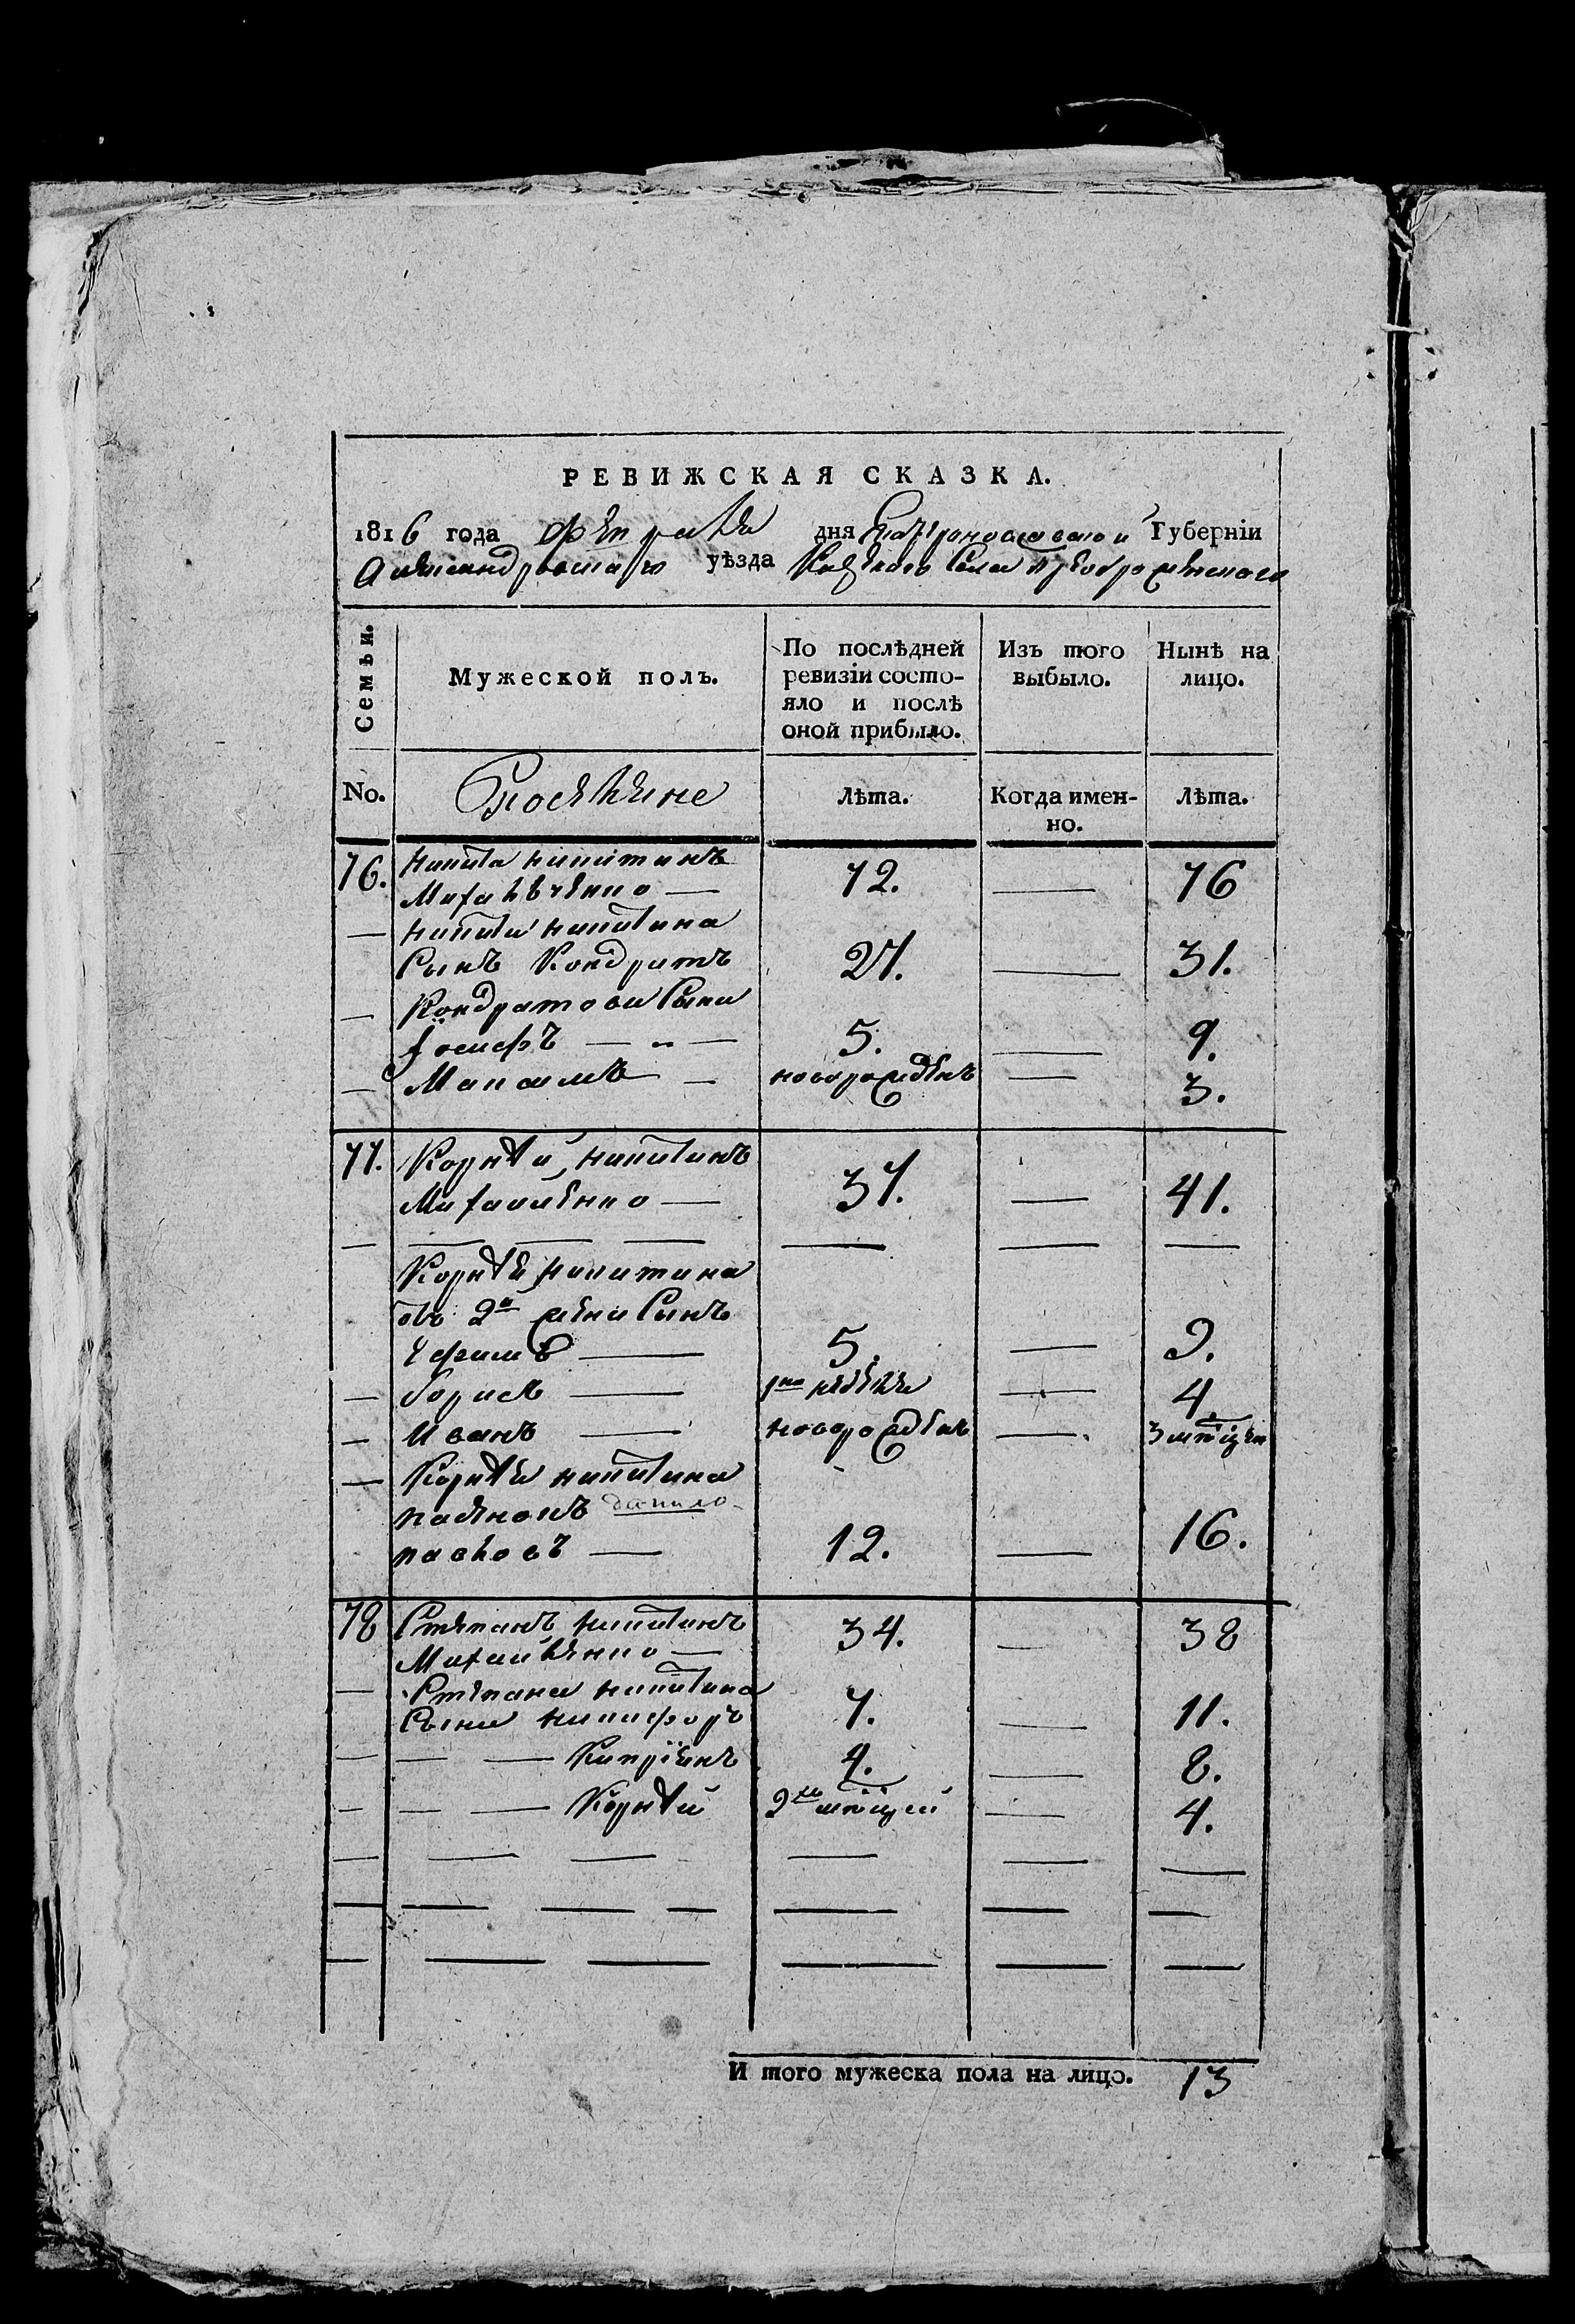 РЕВИЖСКАЯ СКАЗКА.
1816 года февраля дня Екатеринославской Губерніи
Александровскаго уѣзда Казенного Села Преображенского
Семьи.
Мужеской полъ.
По послѣдней ревизіи состо-
яло и послѣ
оной прибыло.
Изъ того
выбыло.
Нынѣ на
лицо.
No.
Поселяне
Лѣта.
Когда имен-
но.
Лѣта.
76. Никита Никитинъ
Михайленко — 72. — 76
— Никиты Никитина
Сынъ Кондратъ 27. — 31.
— Кондратови Сыни
Іосифъ — 5. — 9.
— Максимъ — новорожденъ — 3.
77. Корнѣй Никитинъ
Михайленко — 37. — 41.
— — — — — — —
Корнѣя Никитина
отъ 2й жени Сынъ
Ефимъ — 5. — 9.
— Борисъ — недели — 4.
— Иванъ — новорожденъ — 3 мѣсяцей
— Корнѣя Никитина
пасинокъ данило
павловъ — 12. — 16.
78 Степанъ Никитинъ
Михайленко — 34. — 38
— Степана Никитина
Сыни Никифоръ 7. — 11.
— — — Кипріянъ 4. — 8.
— — — Корнѣй 2хъ мѣсяцей — 4.
— — — — — —
— — — — — — —
— — — — — —
И того мужеска пола на лицо. 13